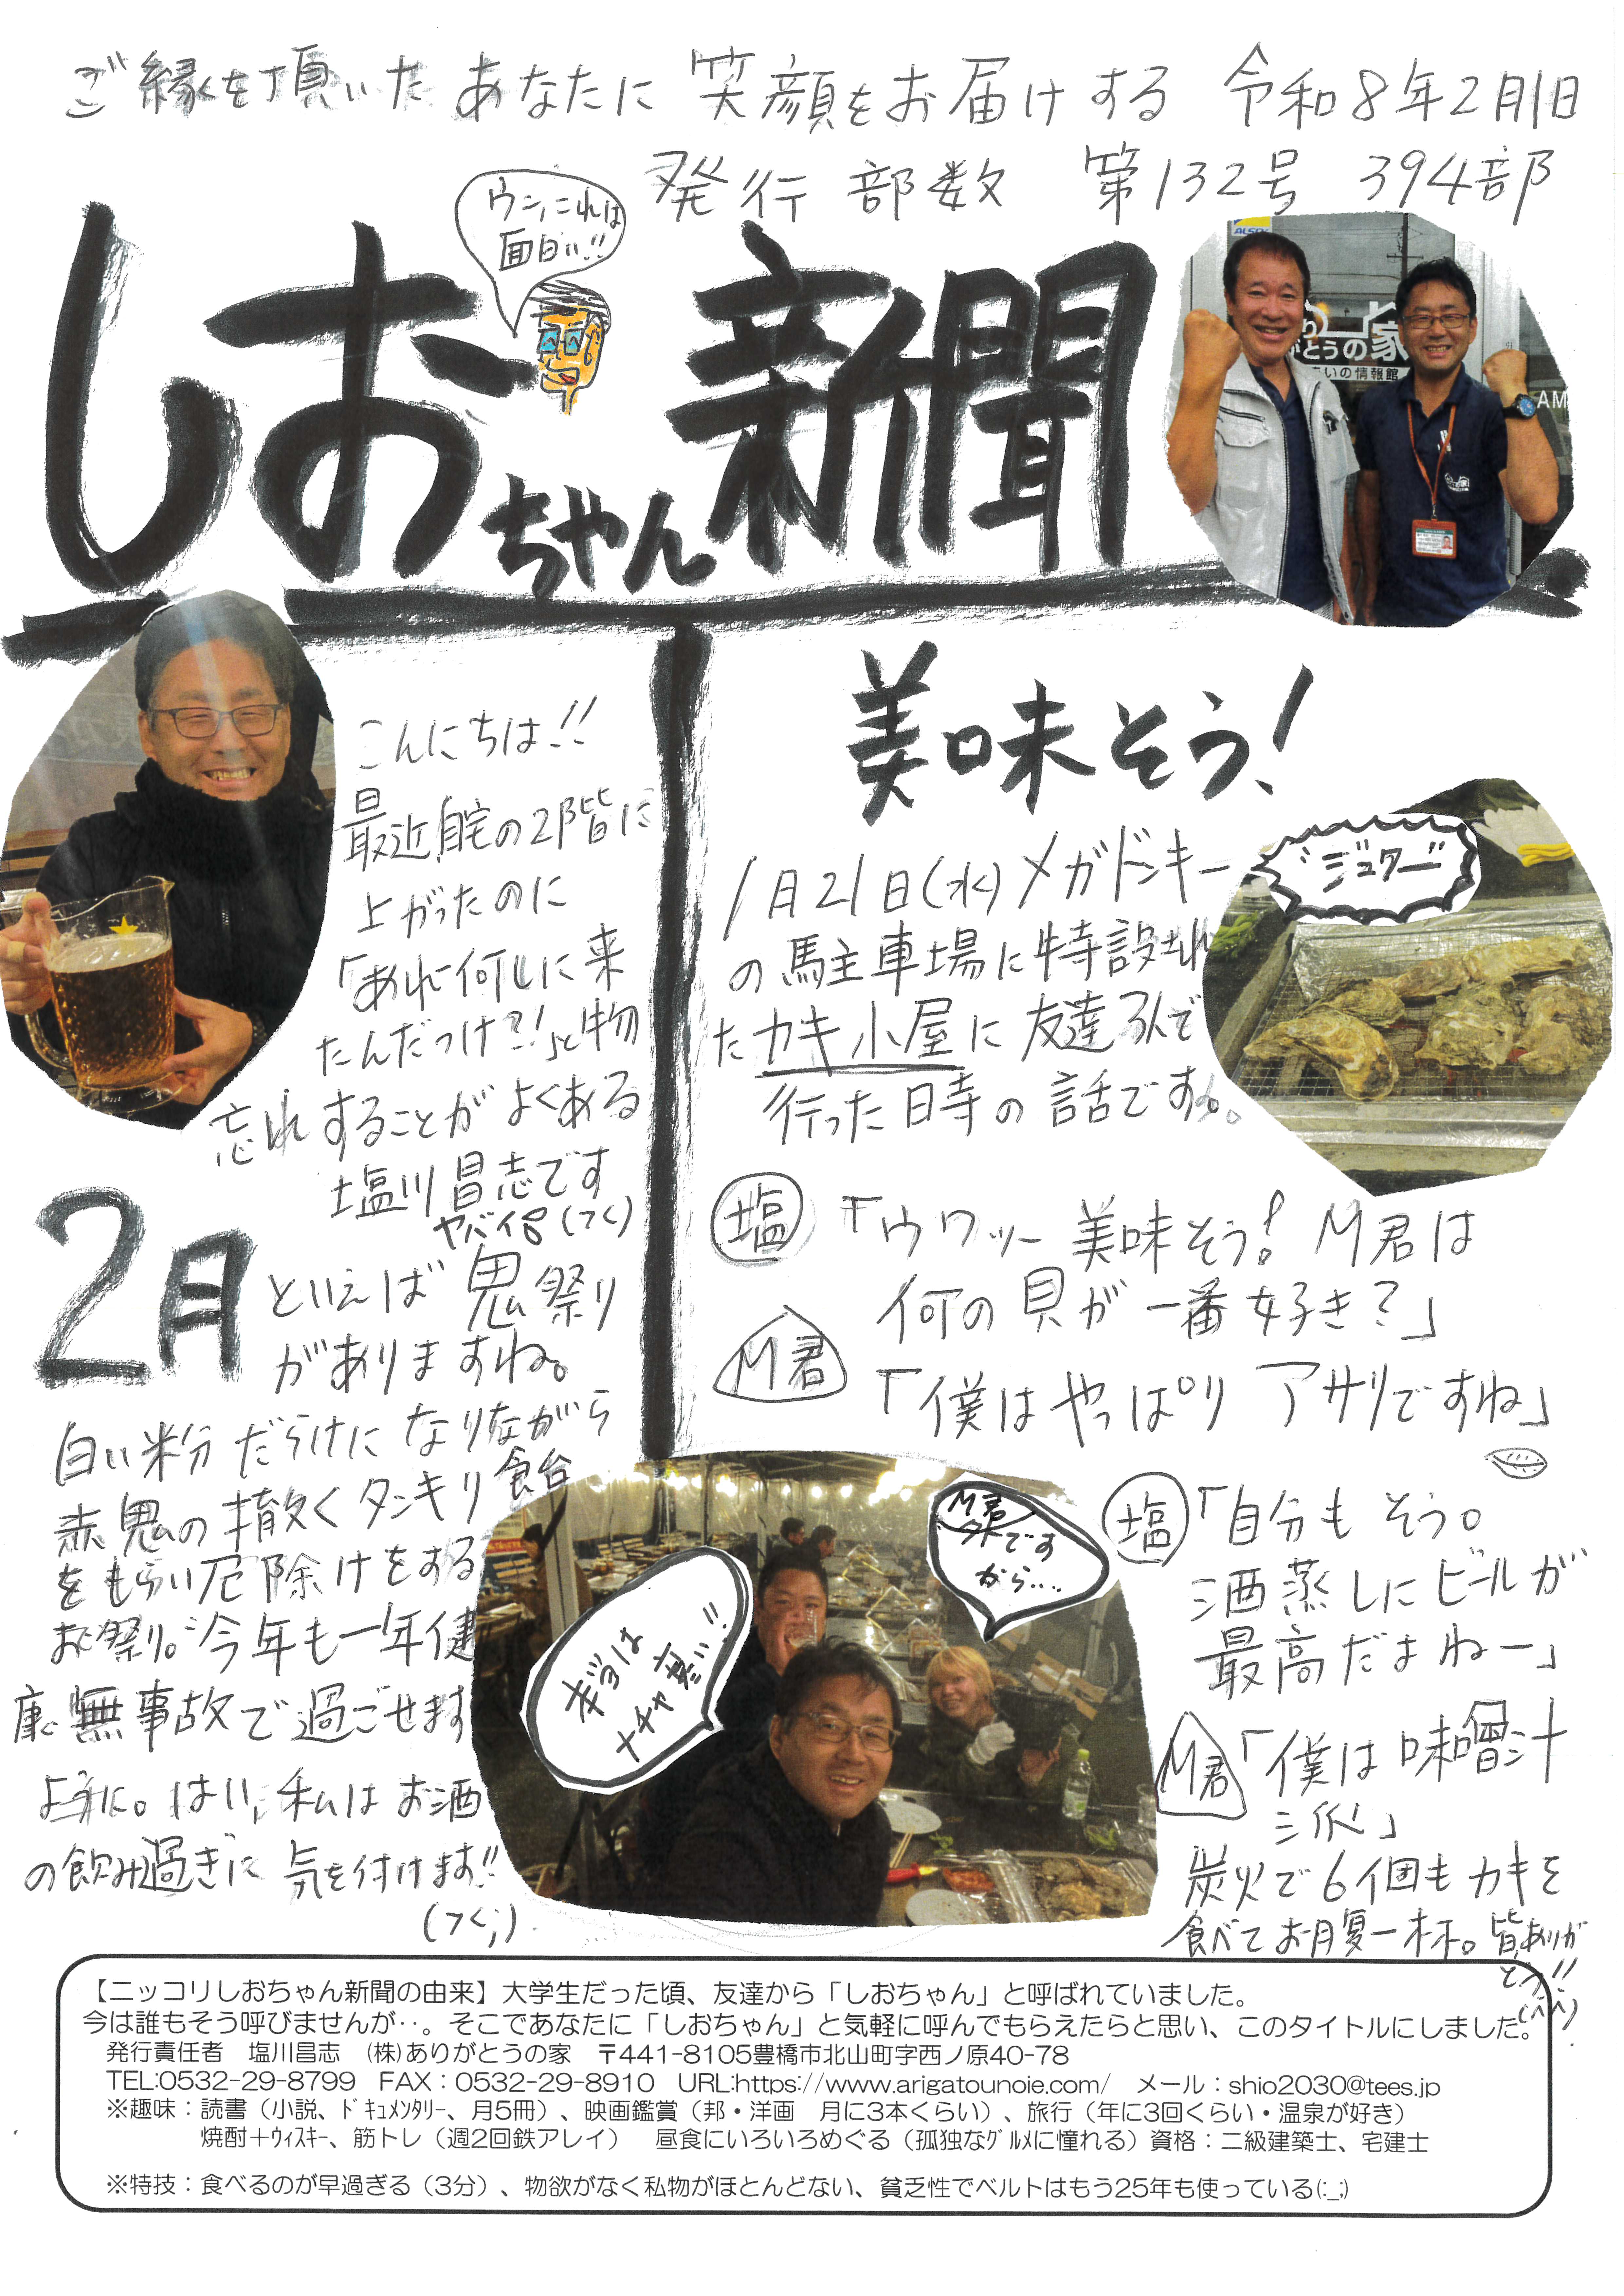 ご縁を頂いたあなたに笑顔をお届けする 令和8年2月1日
発行部数 第132号 394部
ウン、これは
面白い!!
しおちゃん新聞
ALSOK
がとうの家
いの情報館
AM
こんにちは!!
最近自宅の2階に
上がったのに
「あれ何しに来
たんだっけ?!」と物
忘れすることがよくある
塩川昌志です
ヤバイ
2月
といえば鬼祭り
がありますね。
白い粉だらけになりながら
赤鬼の撒くタンキリ飴
をもらい厄除けをする
お祭り。今年も一年健
康、無事故で過ごせます
ように。はい、私はお酒
の飲み過ぎに気を付けます!!
美味そう!
1月21日(水)メガドンキー
の駐車場に特設され
たカキ小屋に友達3人で
行った時の話です。
ジュワー
塩「ウワッー美味そう! M君は
何の貝が一番好き?」
M君「僕はやっぱりアサリですね」
塩「自分もそう。
酒蒸しにビールが
最高だよねー」
M君「僕は味噌汁
派」
炭火で6個もカキを
食べてお腹一杯。皆ありが
とう!!
(^^)
M君
外です
から‥‥
キョリは
メチャ寒い!!
【ニッコリしおちゃん新聞の由来】大学生だった頃、友達から「しおちゃん」と呼ばれていました。
今は誰もそう呼びませんが‥。そこであなたに「しおちゃん」と気軽に呼んでもらえたらと思い、このタイトルにしました。
発行責任者 塩川昌志 (株)ありがとうの家 〒441-8105豊橋市北山町字西ノ原40-78
TEL:0532-29-8799 FAX:0532-29-8910 URL:https://www.arigatounoie.com/ メール:shio2030@tees.jp
※趣味:読書(小説、ﾄﾞｷｭﾒﾝﾀﾘｰ、月5冊)、映画鑑賞(邦・洋画 月に3本くらい)、旅行(年に3回くらい・温泉が好き)
焼酎+ｳｨｽｷｰ、筋トレ(週2回鉄アレイ) 昼食にいろいろめぐる(孤独なｸﾞﾙﾒに憧れる)資格:二級建築士、宅建士
※特技:食べるのが早過ぎる(3分)、物欲がなく私物がほとんどない、貧乏性でベルトはもう25年も使っている(:_;)